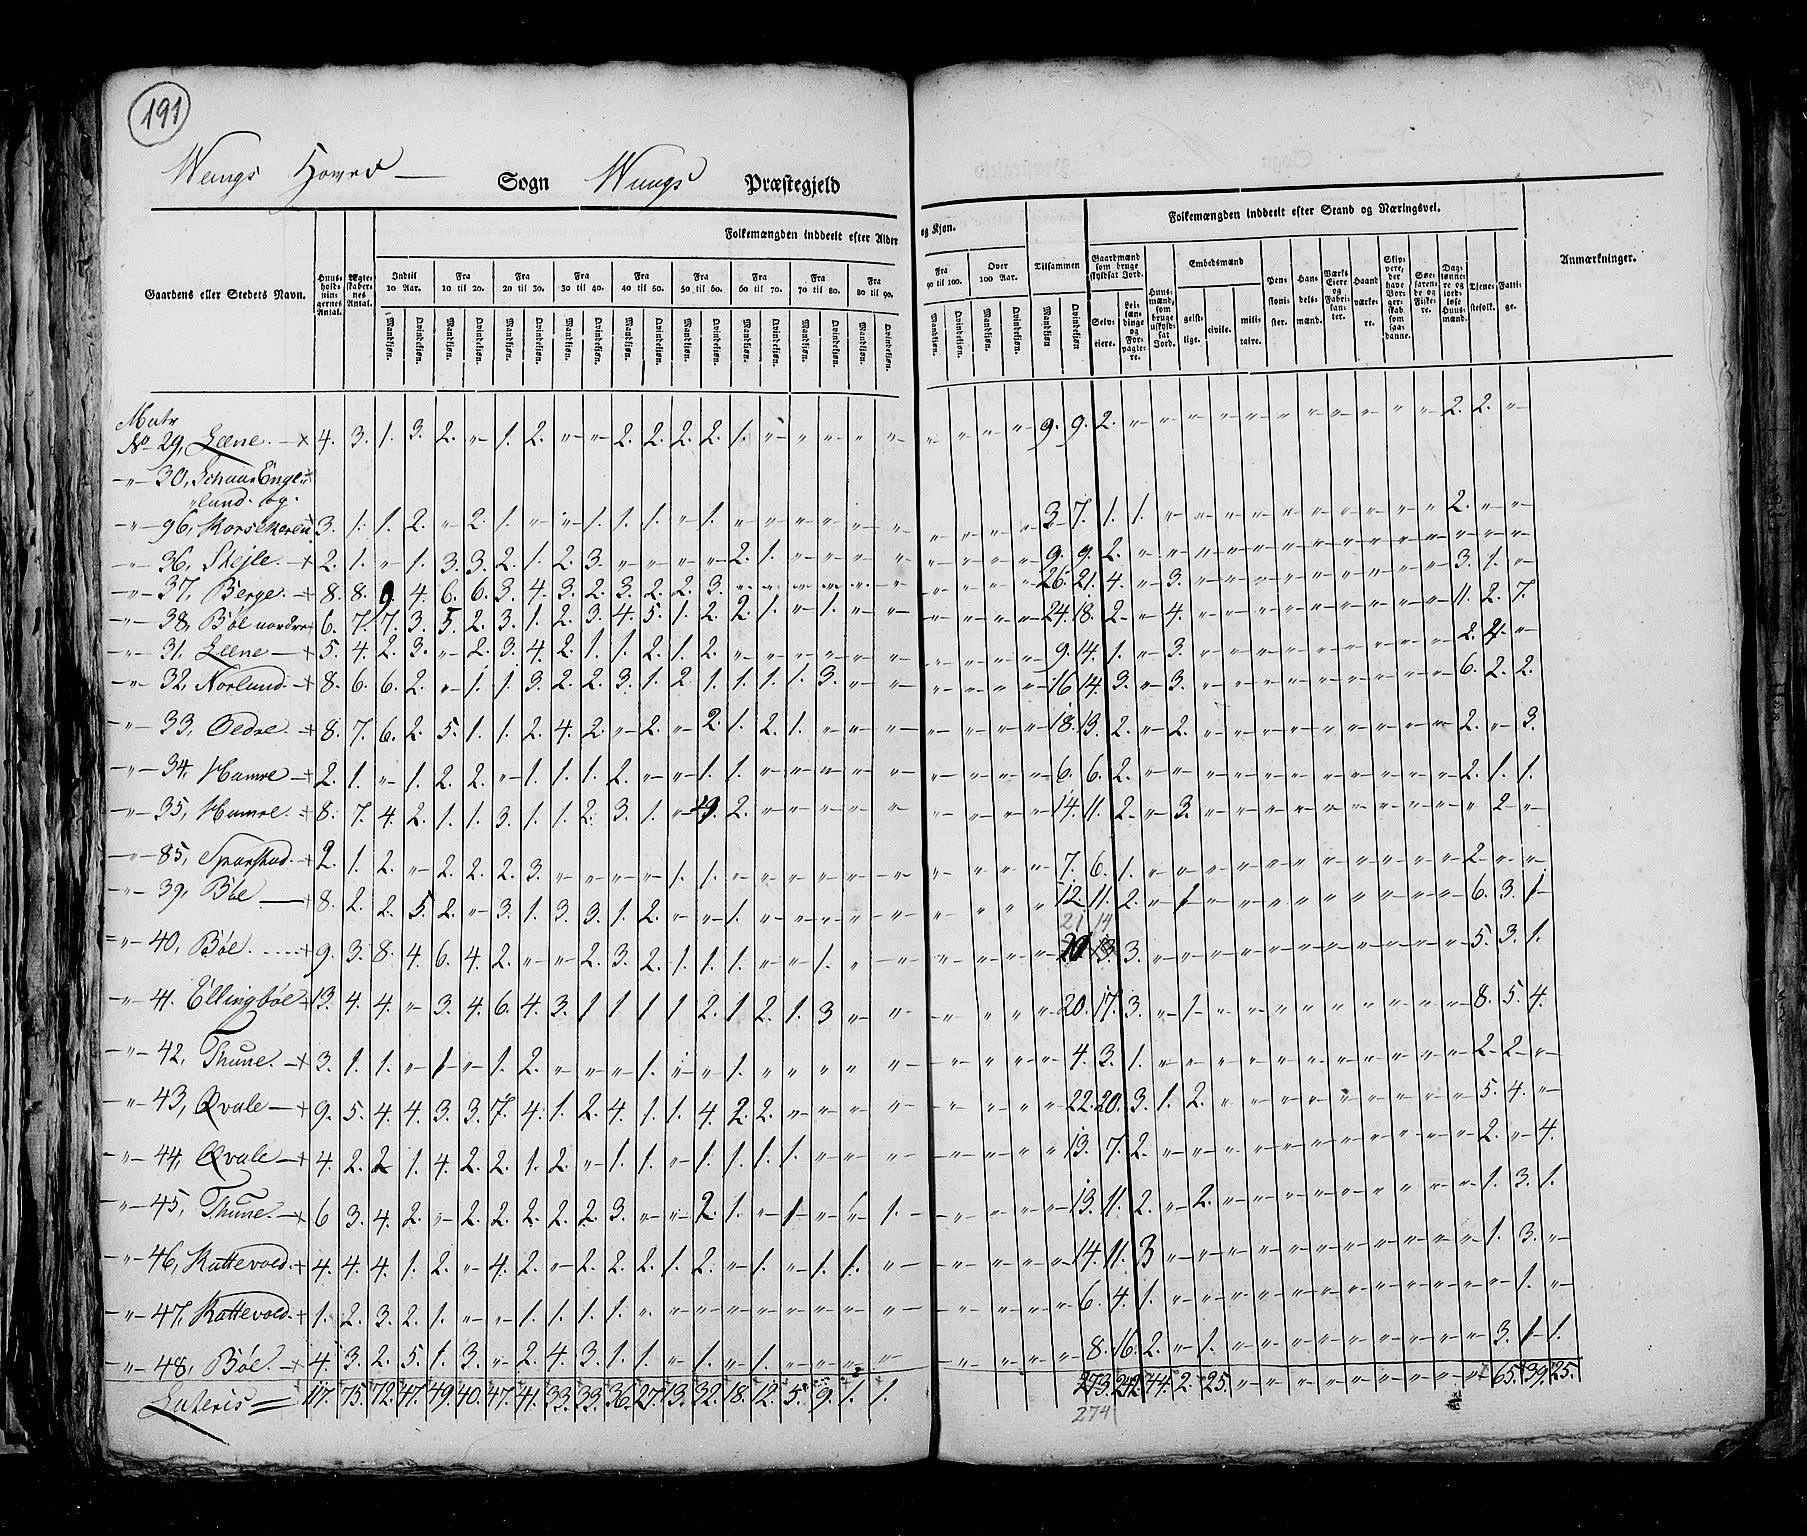 191
Wangs Hoved — Sogn Wangs Præstegjeld
Folkemængden inddeelt efter Alder og Kjøn.
Folkemængden inddeelt efter Stand og Næringsvei.
Gaardens eller Stedets Navn.
Huus-holdnin-gernes Antal.
Ægte-skaber-nes Antal.
Indtil 10 Aar.
Fra 10 til 20.
Fra 20 til 30.
Fra 30 til 40.
Fra 40 til 50.
Fra 50 til 60.
Fra 60 til 70.
Fra 70 til 80.
Fra 80 til 90.
Fra 90 til 100.
Over 100 Aar.
Tilsammen
Mandkiøn. Qvindekiøn.
Gaardmænd som bruge skyldsat Jord.
Selv-eiere.
Lei-læn-dinge og For-pagte-re.
Huus-mænd, som bruge uskyld-sat Jord.
Embedsmænd
geist-lige. civile. mili-taire.
Pen-sioni-ster.
Han-dels-mænd.
Værks Eiere og Fabri-kan-ter.
Haand værke-re.
Skip-pere, der have Bor-ger-skab som saa-danne.
Søe-faren-de og Fiske-re.
Dag-lønne-re og jord-løse Huus-mænd.
Tiene-stefolk.
Fatti-ge.
Anmærkninger.
Matr
No 29, Læne. —× 4. 3. 1. 3. 2. " 1. 2. " " 2. 2. 2. 2. 1. " " " " " " " " " 9. 9. 2. " " " " " " " " " " " 2. 2. "
" 30, Schaar Enge-
lund. og.
" 96, Korsekaren 3. 1. 1. 2. " 2. 1. " " 1. 1. 1. " 1. " " " " " " " " " " 3. 7. 1. 1. " " " " " " " " " " 2. " "
" 36, Skejle. —+ 2. 1. " 1. 3. 3. 2. 1. 2. 3. " " " " 2. 1. " " " " " " " " 9. 9. 2. " " " " " " " " " " " " " "
" 37, Berge. —+ 8. 8. 9 4. 6. 6. 3. 4. 3. 2. 3. 2. 2. 3. " " " " " " " " " " 26. 21. 4. " 3. " " " " " " " " " 3. 1. "
" 38, Böl nordre + 6. 7. 7. 3. 5. 2. 3. 1. 2. 3. 4. 5. 1. 2. 2. 1. " 1. " " " " " " 24. 18. 2. " 4. " " " " " " " " " 11. 2. 7.
" 31. Læne —+ 5. 4. 2. 3. " 2. 3. 4. 2. 1. 1. 2. 1. 2. " " " " " " " " " " 9. 14. 1. " 3. " " " " " " " " " 2. 4. "
" 32, Norlund. + 8. 6. 6. 2. " 1. 1. 3. 2. 2. 3. 1. 2. 1. 1. 1. 1. 3. " " " " " " 16 14. 3. " 3. " " " " " " " " " 6. 2. 2.
" 33, Oedre. —+ 8. 7. 6. 2. 5. 1. 1. 2. 4. 2. " 2. " 2. 1. 2. 1. " " " " " " " 18. 13. 2. " 2. " " " " " " " " " 2. " 3.
" 34, Hamre —+ 2. 1. " 1. 2. 2. " 1. 1. 1. 2. " " 1. 1. " " " " " " " " " 6. 6. 2. " " " " " " " " " " " 2. 1. 1.
" 35, Hamre. + 8. 7. 4. 2. 1. 1. 3. 1. 1. 2. 3. 1. " 4. 2. " " " " " " " " " 14. 11. 2. " 3. " " " " " " " " " " 2. "
" 85, Sparstad. + 2. 1. 2. " 2. 2. 2. 3. " " " " 1. 1. " " " " " " " " " " 7. 6. 1. " " " " " " " " " " " 2. " "
" 39, Böl —+ 8. 2. 2. 5. 2. " 3. 1. 3. 3. 1. 2. " " 1. " " " " " " " " " 12 11. 2. " 1 " " " " " " " " " 6. 3. 1
21 14
" 40, Böl. + 9. 3. 8. 4. 6. 4. 2. " " 2. 3. 2. 1. 1. 1. " " 1. " " " " " " 20 13. 3. " " " " " " " " " " " 5. 3. 1.
" 41. Ellingböl + 13. 4. 4. " 3. 4. 6. 4. 3. 1 1 1 1 2. 1. 2. 1. 3 " " " " " " 20. 17. 3. " 1. " " " " " " " " " 8. 5. 4.
" 42, Thune. + 3. 1. 1. " 1 " 1. 2. " " " 1. " " 1. " " " " " " " " " 4. 3. 1. " " " " " " " " " " " 2. 2. "
" 43, Qvale —+ 9. 5. 4. 4. 3. 3. 7. 4. 1. 2. 4. 1. 1. 4. 2. 2. " " " " " " " " 22. 20. 3. 1. 2. " " " " " " " " " 5. 4. "
" 44, Qvale —+ 4. 2. 2 1. 4. 2. 2. 1. 2. " 1. 1. " 1. 1. 1. 1. " " " " " " " 13. 7. 2. " " " " " " " " " " " 2. " 4.
" 45, Thune. —+ 6 3. 4. 2. " 2. 2. 2. 2. 2. 3. " " 2. 1. " 1 " " 1. " " " " 13. 11. 2. " 2. " " " " " " " " " 1. 3. 1.
" 46, Kattevold. + 4. 4. 4. 1. 2. " 4. 2. " 2. 2. 2. 1. 2. " 1. " 1. 1. " " " " " 14. 11. 3 " " " " " " " " " " " 1. 3. "
" 47, Kattevold. + 1. 2. 3. 2. 1. " " 1. 1. 1. 1. " " " " " " " " " " " " " 6. 4. 1. " " " " " " " " " " " " 1. "
" 48, Böl. —+ 4. 3. 2. 5. 1. 3. " 2. 4. 3. 1. 1. " 1. " 1. " " " " " " " " 8. 16. 2. " 1. " " " " " " " " " 3. 1. 1.
Lateris = 117. 75. 72. 47. 49. 40. 47. 41. 33. 33. 36. 27. 13. 32. 18. 12. 5. 9. 1. 1. 273. 242. 44. 2. 25. " " " " " " " " " 65. 39. 25.
274